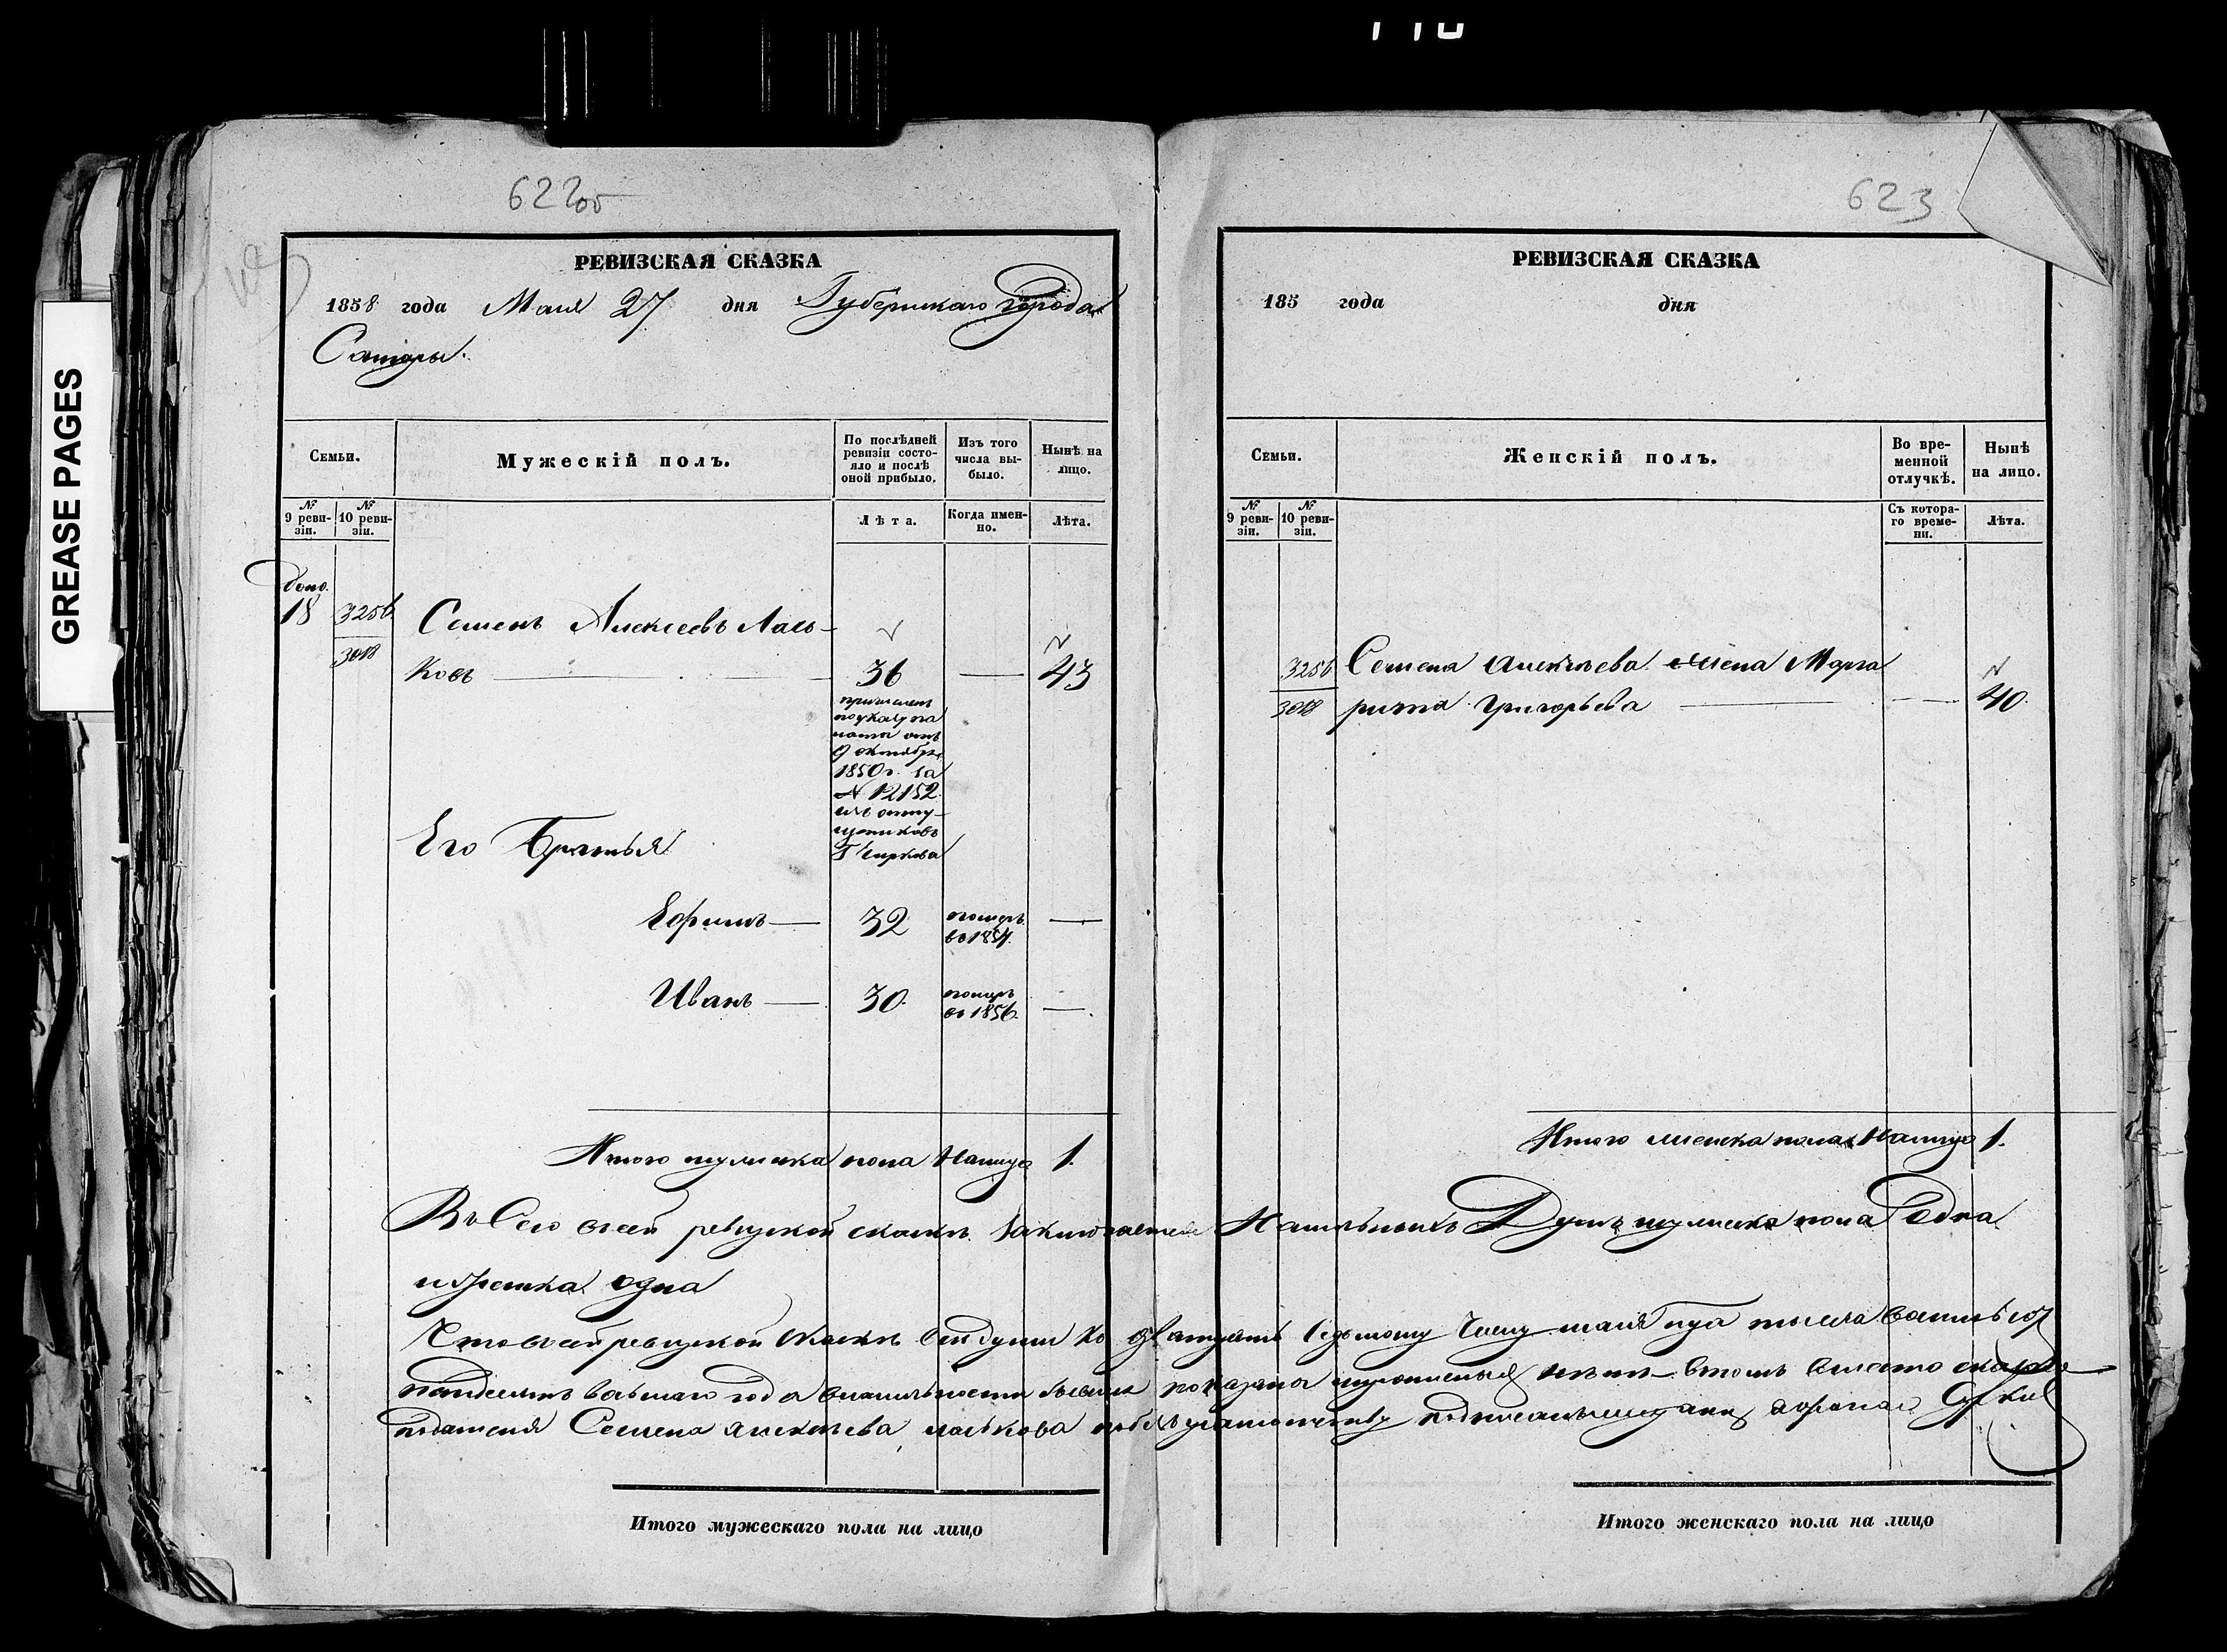 110
GREASE PAGES
622об
РЕВИЗСКАЯ СКАЗКА
1858 года Маия 27 дня Губернскаго города
Самары.
Семьи.
Мужескій полъ.
По послѣдней
ревизіи состо-
яло и послѣ
оной прибыло.
Изъ того
числа вы-
было.
Нынѣ на
лицо.
№
9 реви-
зіи.
№
10 реви-
зіи.
Лѣта.
Когда имен-
но.
Лѣта.
допо.
18 3256
3018
Семенъ Алексеевъ Лась-
ковъ 36 — 43
причисленъ
по указу па
латы отъ
9 октября
1850 г. за
№ 12152
изъ отпу-
щениковъ
Г
Его Братья
Ефимъ — 32 померъ —
во 1854.
Иванъ — 30 померъ —
во 1856.
Итого мужеска пола налицо 1.
623
РЕВИЗСКАЯ СКАЗКА
185 года дня
Семьи.
Женскій полъ.
Во вре-
менной
отлучкѣ.
Нынѣ
на лицо.
№
9 реви-
зіи.
№
10 реви-
зіи.
Съ котора-
го време-
ни.
Лѣта.
3256
3018
Семена Алексѣева жена Марга
рита Григорьева — 40
Итого женска пола налицо 1.
сей ревизкой сказкѣ заключается Наличныхъ Душъ мужеска пола Одна
и женска одна
Что въ сей ревизкой сказкѣ всѣ души ко дватцать седьмому числу маия
восьмаго года показаны
Семена Алексѣева Ласькова
Итого мужескаго пола на лицо
Итого женскаго пола на лицо